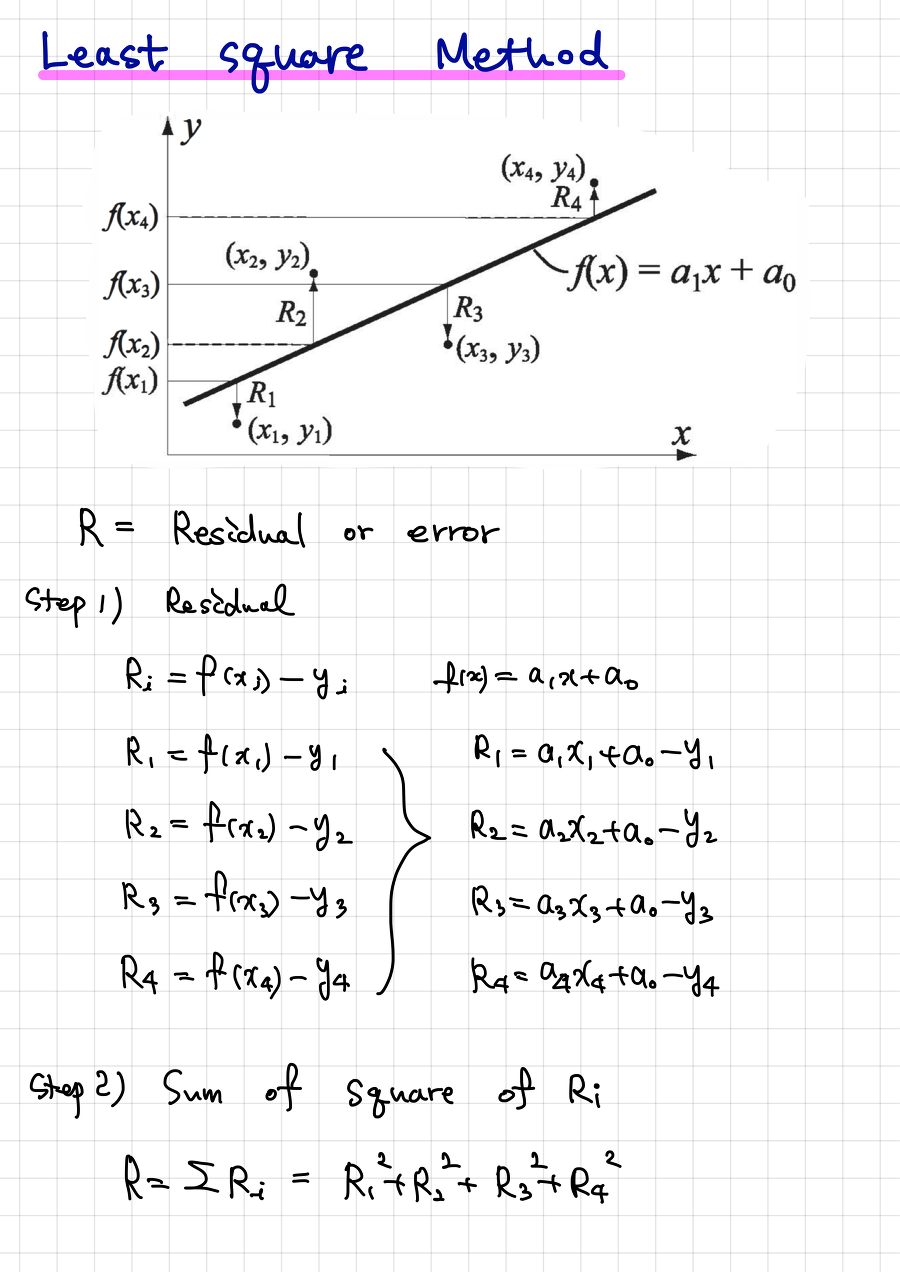 Least square Method
y
(x₄, y₄)
R₄
f(x₄)
(x₂, y₂)
f(x₃)
f(x) = a₁x + a₀
R₂
R₃
f(x₂)
(x₃, y₃)
f(x₁)
R₁
(x₁, y₁)
x
R = Residual or error
Step 1) Residual
Rᵢ = f(xᵢ) − yᵢ f(x) = a₁x + a₀
R₁ = f(x₁) − y₁ R₁ = a₁x₁ + a₀ − y₁
R₂ = f(x₂) − y₂ R₂ = a₂x₂ + a₀ − y₂
R₃ = f(x₃) − y₃ R₃ = a₃x₃ + a₀ − y₃
R₄ = f(x₄) − y₄ R₄ = a₄x₄ + a₀ − y₄
Step 2) Sum of square of Ri
R = Σ Rᵢ = R₁² + R₂² + R₃² + R₄²